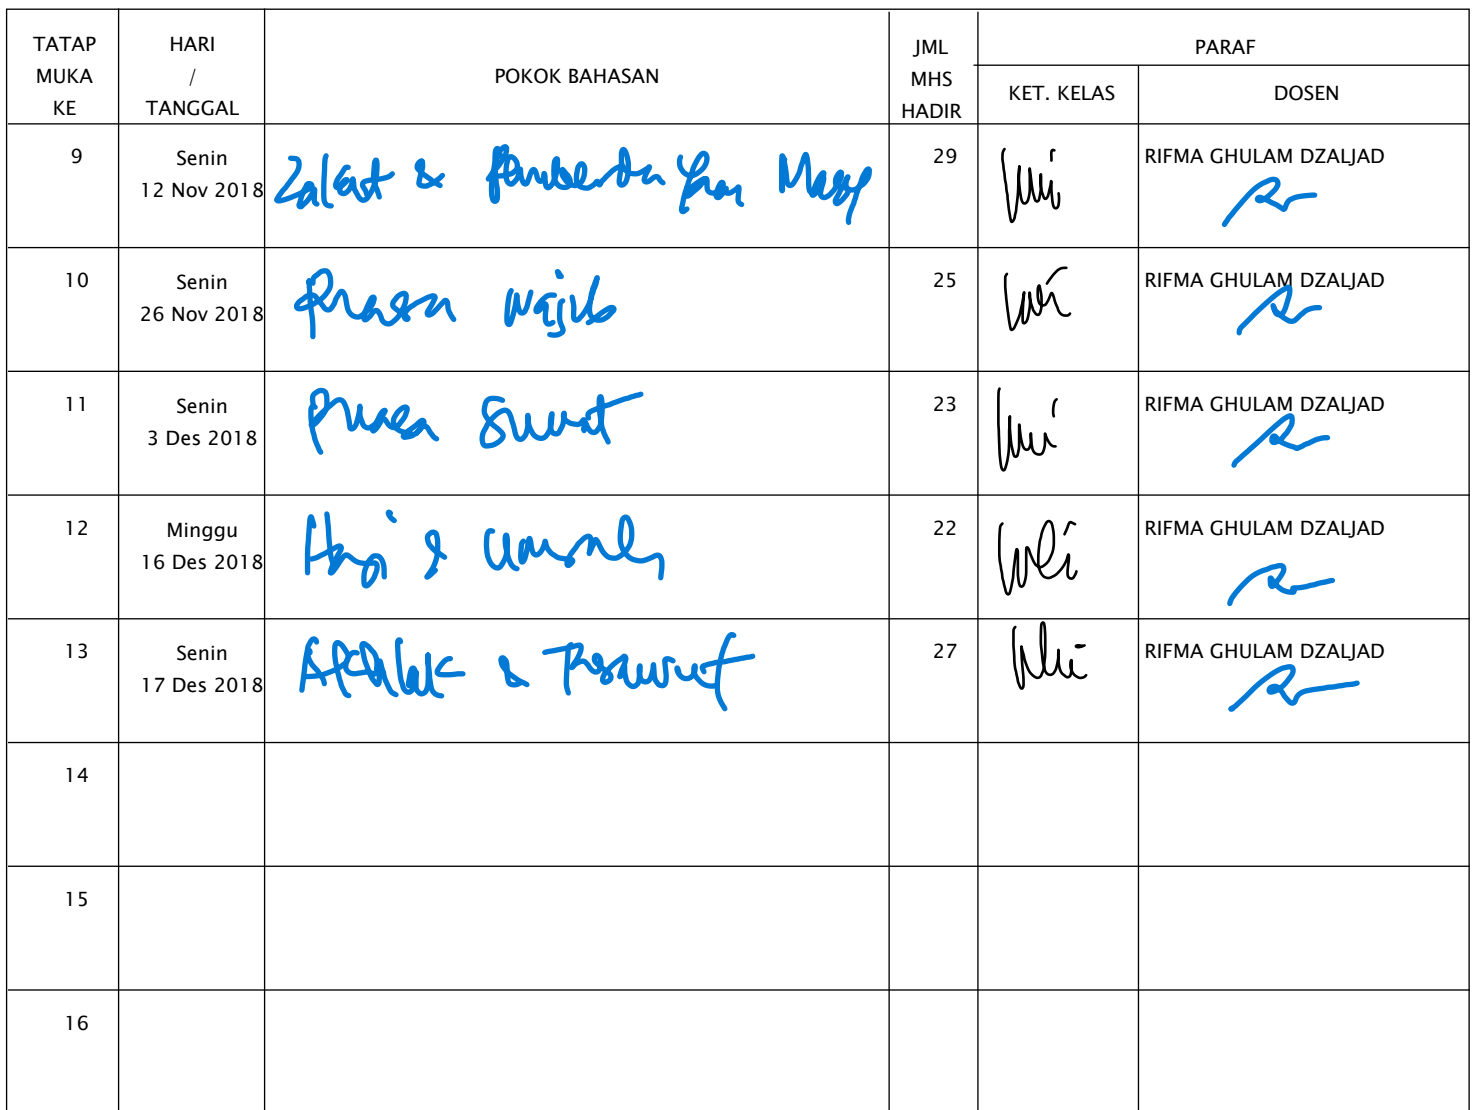 TATAP MUKA KE
HARI / TANGGAL
POKOK BAHASAN
JML MHS HADIR
PARAF
KET. KELAS
DOSEN
9
Senin
12 Nov 2018
Zakat & Pemberdayaan Masy
29
RIFMA GHULAM DZALJAD
10
Senin
26 Nov 2018
Puasa Wajib
25
RIFMA GHULAM DZALJAD
11
Senin
3 Des 2018
Puasa Sunat
23
RIFMA GHULAM DZALJAD
12
Minggu
16 Des 2018
Haji & Umrah
22
RIFMA GHULAM DZALJAD
13
Senin
17 Des 2018
Akhlak & Tasawuf
27
RIFMA GHULAM DZALJAD
14
15
16